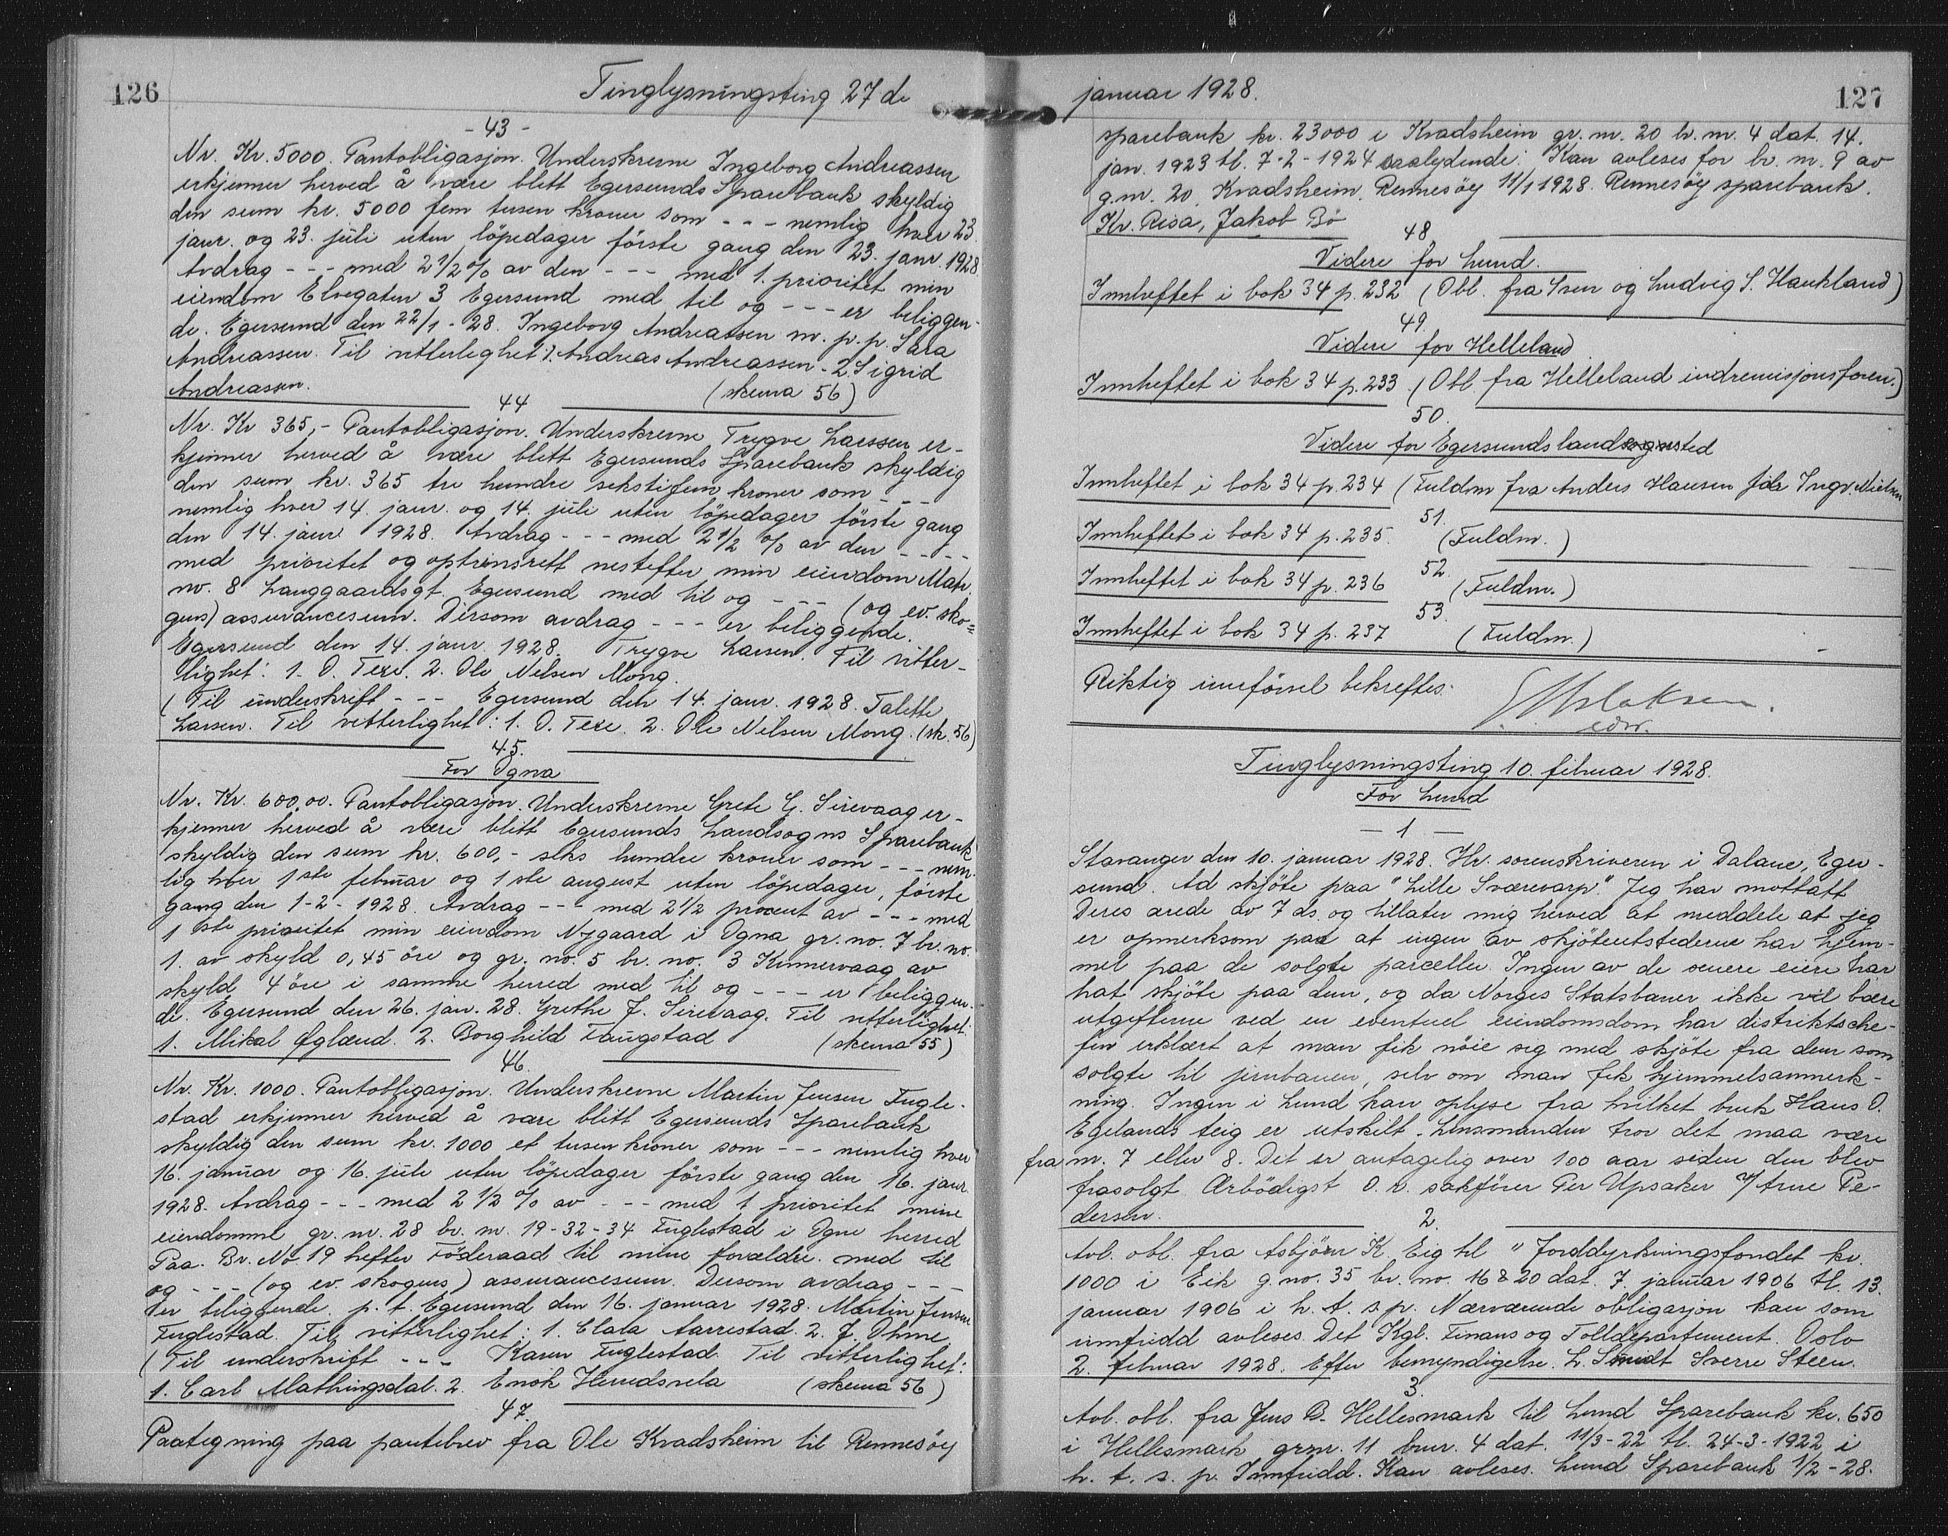 126
Tinglysningsting 27 de
- 43 -
Nr. Kr. 5000. Pantobligasjon. Underskrevne Ingeborg Andreassen
erkjenner herved å være blitt Egersunds Sparebank skyldig
den sum kr. 5000 fem tusen kroner som - - - nemlig hver 23.
janr. og 23. juli uten löpedager förste gang den 23. janr. 1928
Avdrag - - - med 2 1/2 % av den - - - med 1. prioritet min
eiendom Elvegaten 3 Egersund med til og - - - er beliggen-
de. Egersund den 22/1 - 28. Ingeborg Andreassen m. p. p. Sara
Andreassen. Til vitterlighet: 1. Andreas Andreassen - 2. Sigrid
Andreassen. (skema 56)
44
Nr. Kr 365,- Pantobligasjon. Underskrevne Trygve Larssen er-
kjenner herved å være blitt Egersunds Sparebank skyldig
den sum kr. 365 tre hundre sekstifem kroner som - - -
nemlig hver 14. janr. og 14. juli uten löpedager förste gang
den 14. janr 1928. Avdrag - - - med 2 1/2 % av den - - - -
med prioritet og optrinsrett nestefter min eiendom Matr.
no. 8 Langgaardsgt. Egersund med til og - - - (og ev. sko=
gens) assurancesum. Dersom avdrag - - - er beliggende.
Egersund den 14. janr. 1928. Trygve Larsen. Til vitter-
lighet: 1. O. Texe. 2. Ole Nelsen Mong.
(Til underskrift - - - Egersund den 14. janr. 1928. Talette
Larsen. Til vitterlighet: 1. O. Texe. 2. Ole Nelsen Mong. (sk. 56)
45.
For Ogna
Nr. Kr. 600,00. Pantobligasjon. Underskrevne Grete G. Sirevaag er-
kjenner herved å være blitt Egersunds Landsogns Sparebank
skyldig den sum kr. 600,- seks hundre kroner som - - - nem-
lig hver 1ste februar og 1ste august uten löpedager, förste
gang den 1-2- 1928. Avdrag - - - med 2 1/2 procent av - - - med
1ste prioritet min eiendom Nygaard i Ogna gr. no. 7 br. no.
1. av skyld 0,45 öre og gr. no. 5 br. no. 3 Kinnervaag av
skyld 4 öre i samme herred med til og - - - er beliggen-
de. Egersund den 26. jan. 28. Grethe J. Sirevaag. Til vitterlighet:
1. Mikal Øglænd. 2. Borghild Taugstad (skema 55)
46.
Nr. Kr. 1000. Pantobligasjon. Underskrevne Martin Jensen Fugle-
stad erkjenner herved å være blitt Egersunds Sparebank
skyldig den sum kr. 1000 et tusen kroner som - - - nemlig hver
16. januar og 16. juli uten löpedager förste gang den 16. janr
1928. Avdrag - - - med 2 1/2 % av - - - med 1 prioritet mine
eiendomme gr. nr. 28 br. nr. 19-32-34 Fuglestad i Ogne herred
Paa. Br. No 19 hefter Föderaad til mine forældre. med til
og - - - (og ev. skogens) assurancesum. Dersom avdrag - - -
er beliggende. p. t. Egersund den 16. januar 1928. Martin Jensen
Fuglestad. Til vitterlighet: 1. Clala Aarrestad. 2. J. Ohme
(Til underskrift - - - Karen Fuglestad. Til vitterlighet:
1. Carl Mathingsdal. 2. Enok Herredsvela (skema 56)
47.
Paategning paa pantebrev fra Ole Kvadsheim til Rennesøy
januar 1928.
127
sparebank kr. 23000 i Kvadsheim gr. nr. 20 br. nr. 4 dat. 14.
jan. 1923 tl. 7-2-1924 saalydende: Kan avleses for br. nr. 9 av
g.nr. 20. Kvadsheim. Rennesöy 11/1 1928. Rennesöy sparebank.
Kr. Risa, Jakob Bö
48
Videre for Lund.
Innheftet i bok 34 p. 232 (Obl. fra Sven og Ludvig S. Haukland)
49.
Videre for Helleland
Innheftet i bok 34 p. 233 (Obl fra Helleland indremisjonsforen.)
50.
Videre for Egersunds landsogn
Innheftet i bok 34 p. 234 (Fuldm fra Anders Hansen Ingv. Nielsen
51.
Innheftet i bok 34 p. 235. (Fuldm.)
52.
Innheftet i bok 34 p. 236 (Fuldm.)
53.
Innheftet i bok 34 p. 237 (Fuldm.)
Riktig inneförsel bekreftes.
Tinglysningsting 10. februar 1928.
For Lund
- 1 -
Stavanger den 10. januar 1928. Hr. sorenskriveren i Dalane, Eger-
sund. Ad skjöte paa "Lille Sværevarp." Jeg har mottatt
Deres ærede av 7 ds. og tillater mig herved at meddele at jeg
er opmerksom paa at ingen av skjöteutstederne har hjem-
mel paa de solgte parceller. Ingen av de senere eiere har
hat skjöte paa dem, og da Norges Statsbaner ikke vil bære
utgifterne ved en eventuel eiendomsdom har distriktsche-
fen erklært at man fik nöie sig med skjöte fra dem som
solgte til jernbanen, selv om man fik hjemmelsanmerk-
ning. Ingen i Lund kan oplyse fra hvilket bruk Hans O.
Egelands teig er utskilt. Lensmanden tror det maa være
fra nr. 7 eller 8. Det er antagelig over 100 aar siden den blev
frasolgt. Ærbödigst O. r. sakförer Per Upsaker e/ Arne Pe-
dersen.
2.
Avl. obl. fra Asbjörn K. Eig til "Jorddyrkningsfondet kr.
1000 i Eik g. no. 35 br. no. 16 & 20 dat. 7. januar 1906 tl. 13.
januar 1906 i h. t. s. p. Nærværende obligasjon kan som
innfridd avleses. Det Kgl. Finans og Tolldepartement. Oslo
2. februar 1928. Efter bemyndigelse. L. Smidt Sverre Steen.
3.
Avl. obl. fra Jens B. Hellesmark til Lund Sparebank kr. 650
i Hellesmark grnr. 11 brnr. 4 dat. 11/3-22 tl. 24-3-1922 i
h. t. s. p. Innfridd. Kan avleses. Lund Sparebank 1/2-28.